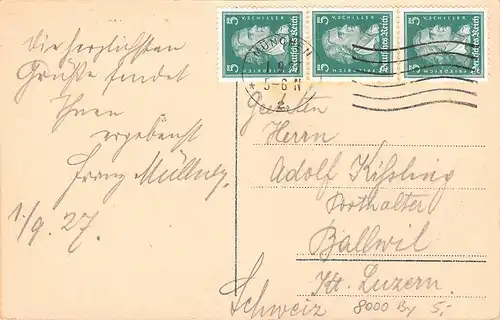 Die herzlichsten
Grüße sendet
Ihnen
ergebenst
Franz Müllner
1./9. 27.
5 FRIEDRICH V. SCHILLER Deutsches Reich
5 FRIEDRICH V. SCHILLER Deutsches Reich
5 FRIEDRICH V. SCHILLER Deutsches Reich
MÜNCHEN
* 5-6 N
2
Herrn
Adolf Kißling
Posthalter
Ballwil
Kt. Luzern.
Schweiz
8000 By 5,-